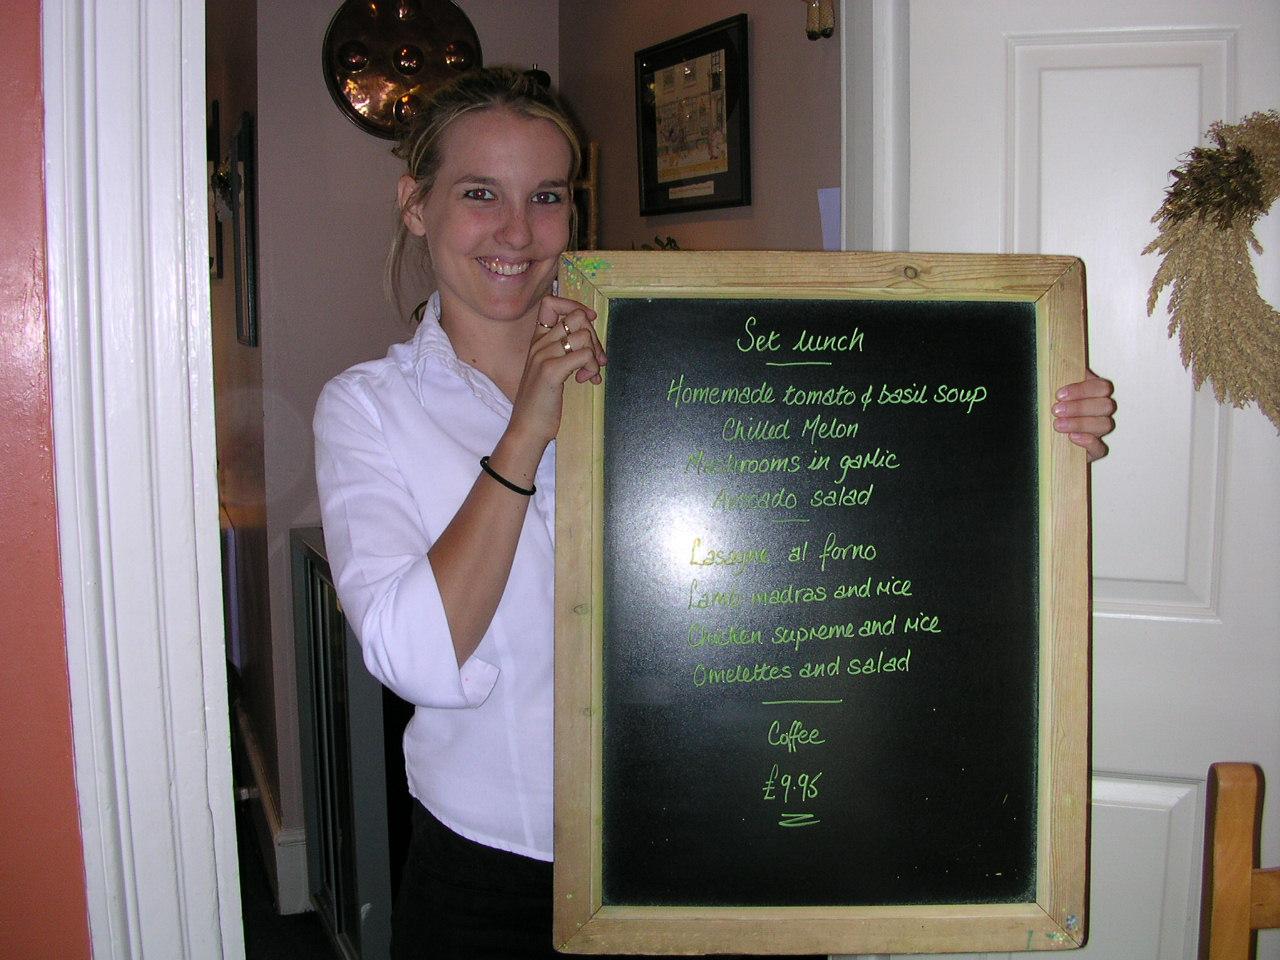 Set lunch
Homemade tomato & basil soup
Chilled Melon
Mushrooms in garlic
Avocado salad
Lasagne al forno
Lamb madras and rice
Chicken supreme and rice
Omelettes and salad
Coffee
£9.95